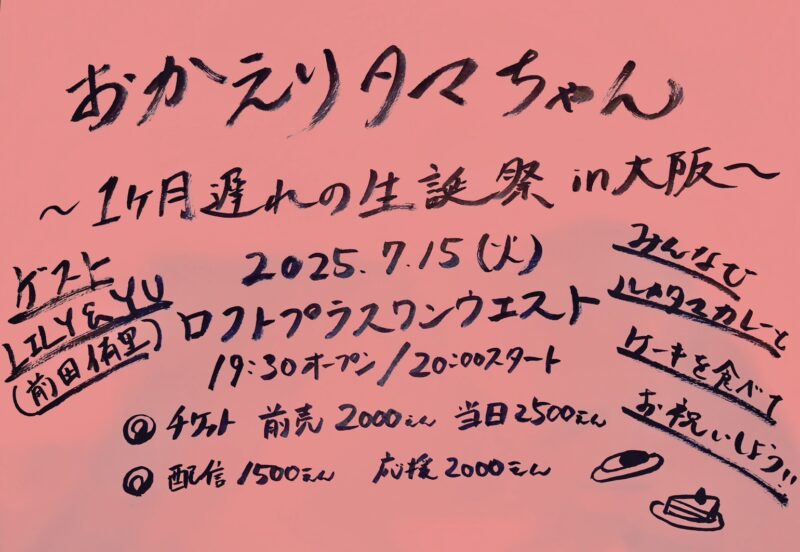 おかえりタマちゃん
～1ヶ月遅れの生誕祭 in大阪～
2025.7.15(火)
ロフトプラスワンウエスト
19:30オープン/20:00スタート
◎チケット 前売2000えん 当日2500えん
◎配信1500えん 応援2000えん
ゲスト
LILY&YU
(前田侑里)
みんなで
ルタマカレーと
ケーキを食べて
お祝いしよう!!